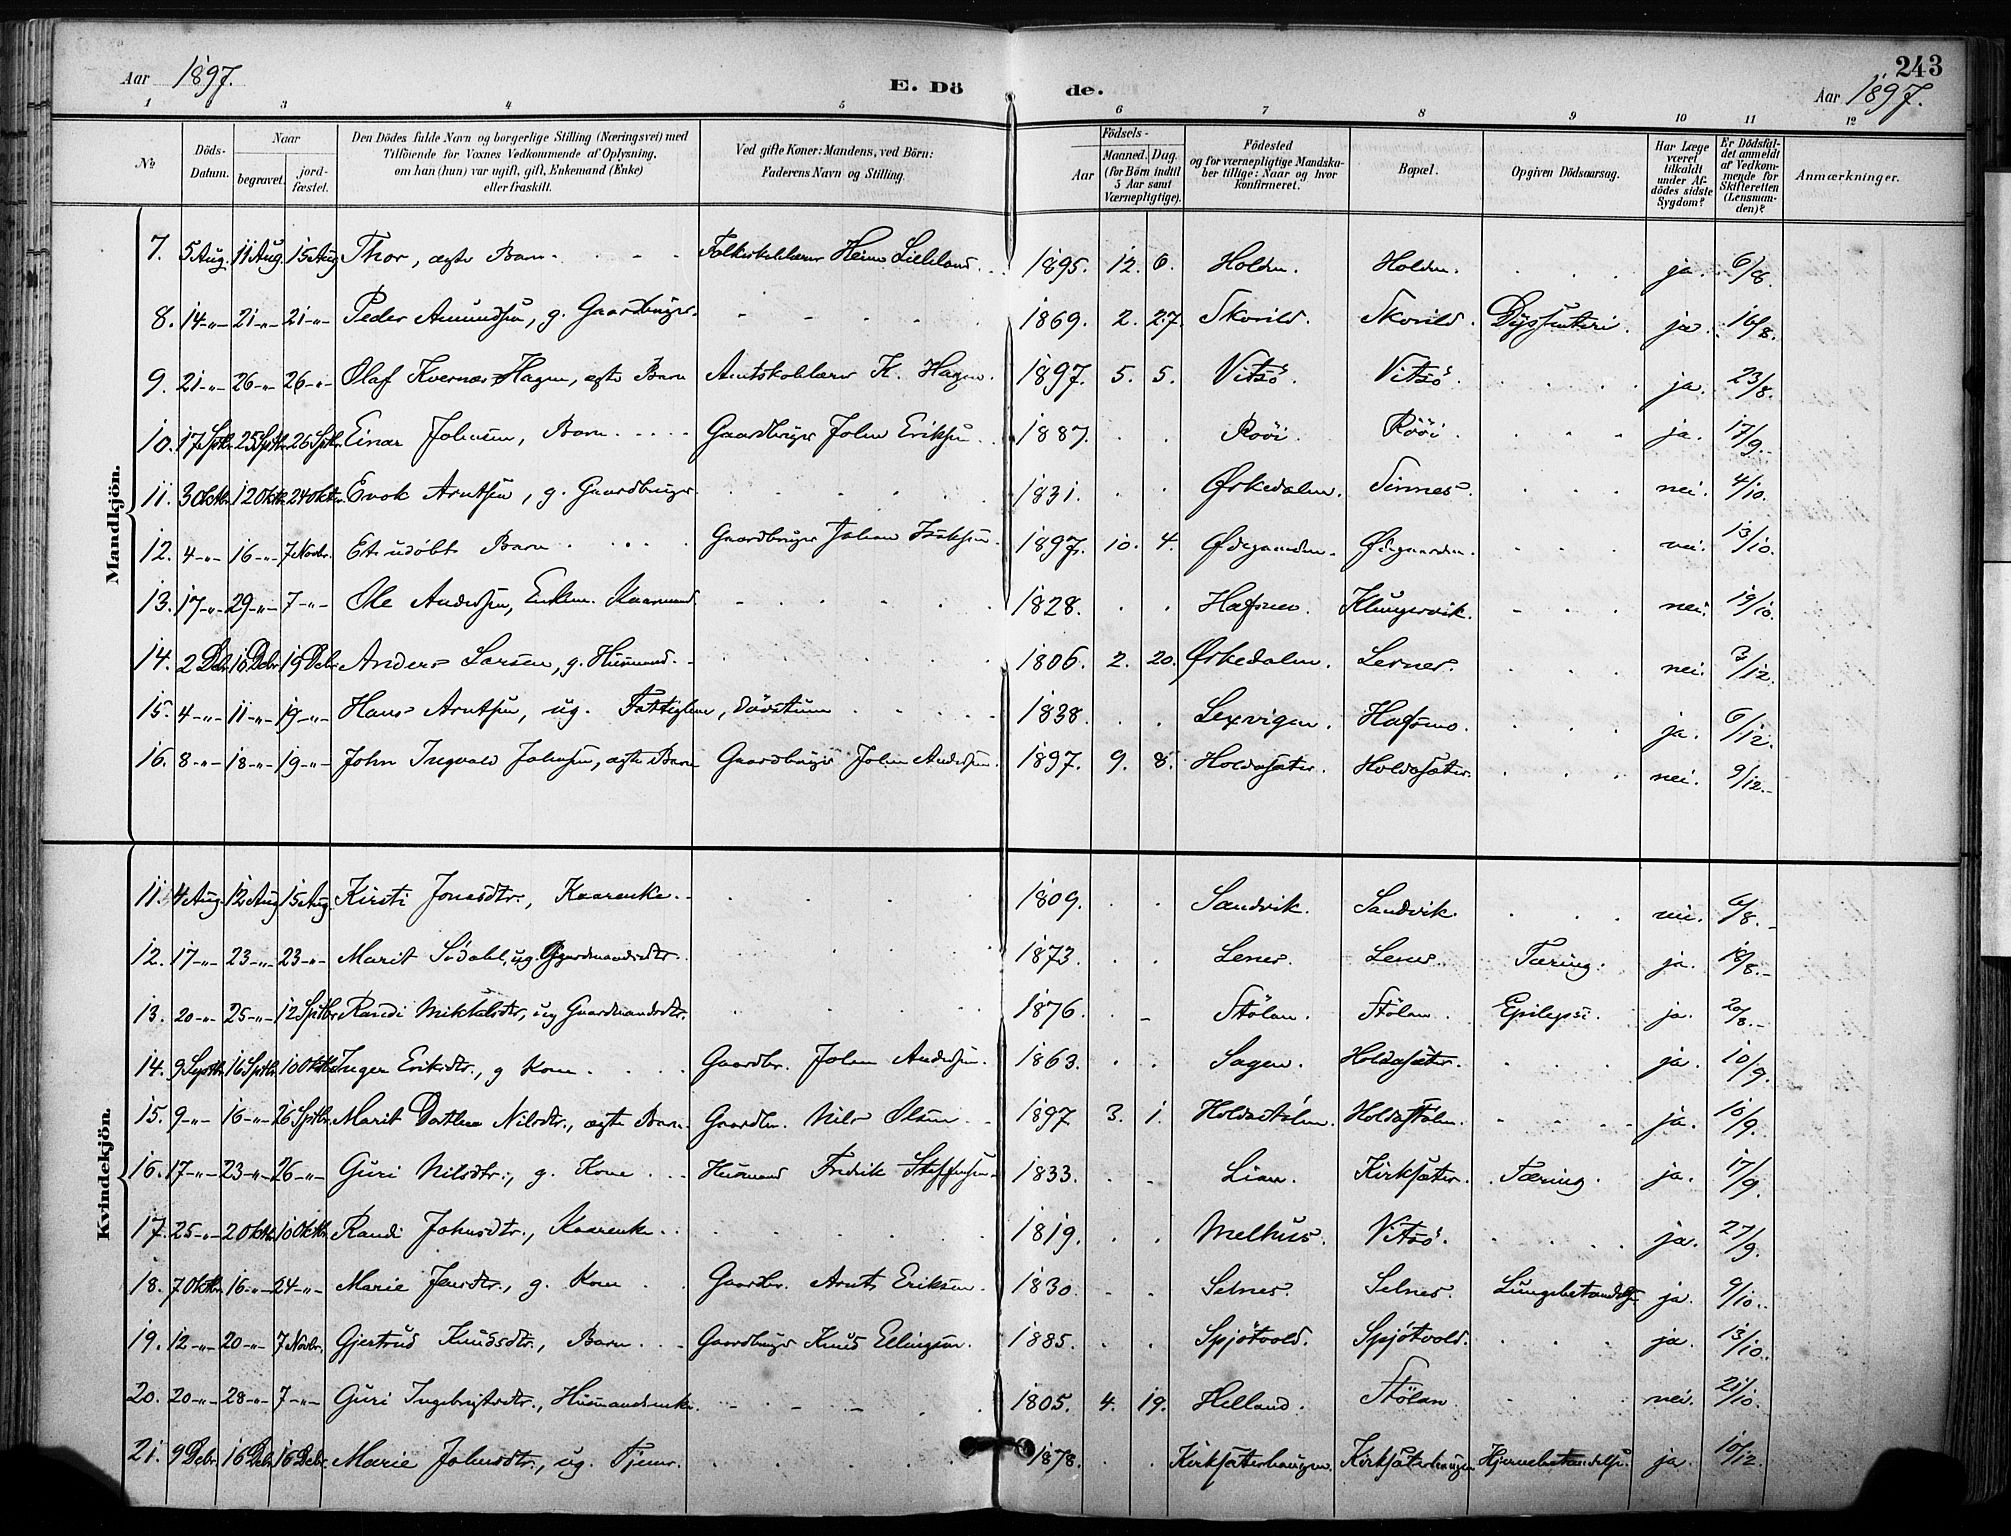 243
Aar 1897. E. Dö de. Aar 1897.
1 3 4 5 6 7 8 9 10 11 12
№ Döds-Datum. Naar begravet. jord-fæstet. Den Dödes fulde Navn og borgerlige Stilling (Næringsvei) med Tilföiende for Voxnes Vedkommende af Oplysning, om han (hun) var ugift, gift, Enkemand (Enke) eller fraskilt. Ved gifte Koner: Mandens, ved Börn: Faderens Navn og Stilling. Födsels- Aar Maaned. Dag. (for Börn indtil 5 Aar samt Værnepligtige). Födested og for værnepligtige Mandskaber tillige: Naar og hvor konfirmeret. Bopæl. Opgiven Dödsaarsag. Har Læge været tilkaldt under Afdödes sidste Sygdom? Er Dödsfaldet anmeldt af Vedkommende for Skifteretten (Lensmanden)? Anmærkninger.
Mandkjön.
7. 5 Aug. 11 Aug. 15 Aug. Thor, ægte Barn. Folkeskolelærer Heim Lilleland 1895. 12. 6. Holden. Holden. ja. 6/8.
8. 14-"- 21-"- 21-"- Peder Amundsen, g. Gaardbruger. 1869. 2. 27. Skorild. Skorild. Dyssenteri. ja. 16/8.
9. 21-"- 26-"- 26-"- Olaf Kvernæs Hagen, ægte Barn Amtskolelærer K. Hagen. 1897. 5. 5. Vitsö. Vitsö. ja. 23/8.
10. 17 Septbr. 25 Septbr. 26 Septbr. Einar Johnsen, Barn Gaardbruger John Eriksen 1887. Rööi. Rööi. ja. 17/9.
11. 3 Oktbr. 12 Oktbr. 24 Oktbr. Enok Arntsen, g. Gaardbruger 1831. Ørkedalen. Sinnes. nei. 4/10.
12. 4-"- 16-"- 7 Novbr. Et udöbt Barn Gaardbruger Johan Isaksen. 1897. 10. 4. Ødegaarden. Ødegaarden. nei. 13/10.
13. 17-"- 29-"- 7-"- Ole Andersen, Enkem. Kaarmand. 1828. Hafsmo. Klungervik. nei. 19/10.
14. 2 Debr. 10 Debr. 19 Debr. Anders Larsen, g. Husmand. 1806. 2. 20. Ørkedalen. Lernes. nei. 3/12.
15. 4-"- 11-"- 19-"- Hans Arntsen, ug. Fattiglem, dövstum 1838. Lexvigen. Hafsmo. ja. 6/12.
16. 8-"- 18-"- 19-"- John Ingvald Johnsen, ægte Barn Gaardbruger John Andersen. 1897. 9. 8. Holdasæter. Holdasæter. nei. 9/12.
Kvindekjön.
11. 4 Aug. 12 Aug. 15 Aug. Kirsti Jonasdtr., Kaarenke. 1809. Sandvik. Sandvik. nei. 6/8.
12. 17-"- 23-"- 23-"- Marit Södahl, ug. Gaardmandsdtr. 1873. Lenes. Lenes. Tæring. ja. 18/8.
13. 20-"- 25-"- 12 Septbr. Randi Mikkelsdtr., ug Gaardmandsdtr. 1876. Stölan. Stölan. Epilepsi. ja. 20/8.
14. 9 Septbr. 16 Septbr. 10 Oktbr. Inger Eriksdtr., g Kone Gaardbr. John Andersen. 1863. Sagen. Holdasæter. ja. 10/9.
15. 9-"- 16-"- 26 Septbr. Marit Dorthea Nilsdtr., ægte Barn. Gaardbr. Nils Olsen 1897 3. 1. Holdastölen. Holdastölen. ja. 10/9.
16. 17-"- 23-"- 26-"- Guri Nilsdtr., g. Kone Husmand Fredrik Steffensen 1833. Lian. Kirksæter. Tæring. ja. 17/9.
17. 25-"- 2 Oktbr. 10 Oktbr. Randi Johnsdtr., Kaarenke 1819. Melhus. Vitsö. ja. 27/9.
18. 7 Oktbr. 16-"- 24-"- Marie Jensdtr., g. Kone Gaardbr. Arnt Eriksen 1830. Selnes. Selnes. Lungebetændelse ja. 9/10.
19. 12-"- 20-"- 7 Novbr. Gjertrud Knudsdtr., Barn Gaardbruger Knud Ellingsen. 1885. Spjötvold. Spjötvold. ja. 13/10.
20. 20-"- 28-"- 7-"- Guri Ingebrigtsdtr., Husmandsenke 1805. 4. 19. Helland. Stölan. nei. 21/10.
21. 9 Debr. 16 Debr. 16 Debr. Marie Johnsdtr., ug. Tjener. 1878. Kirksæterhaugen. Kirksæterhaugen Hjernebetændelse. ja. 10/12.